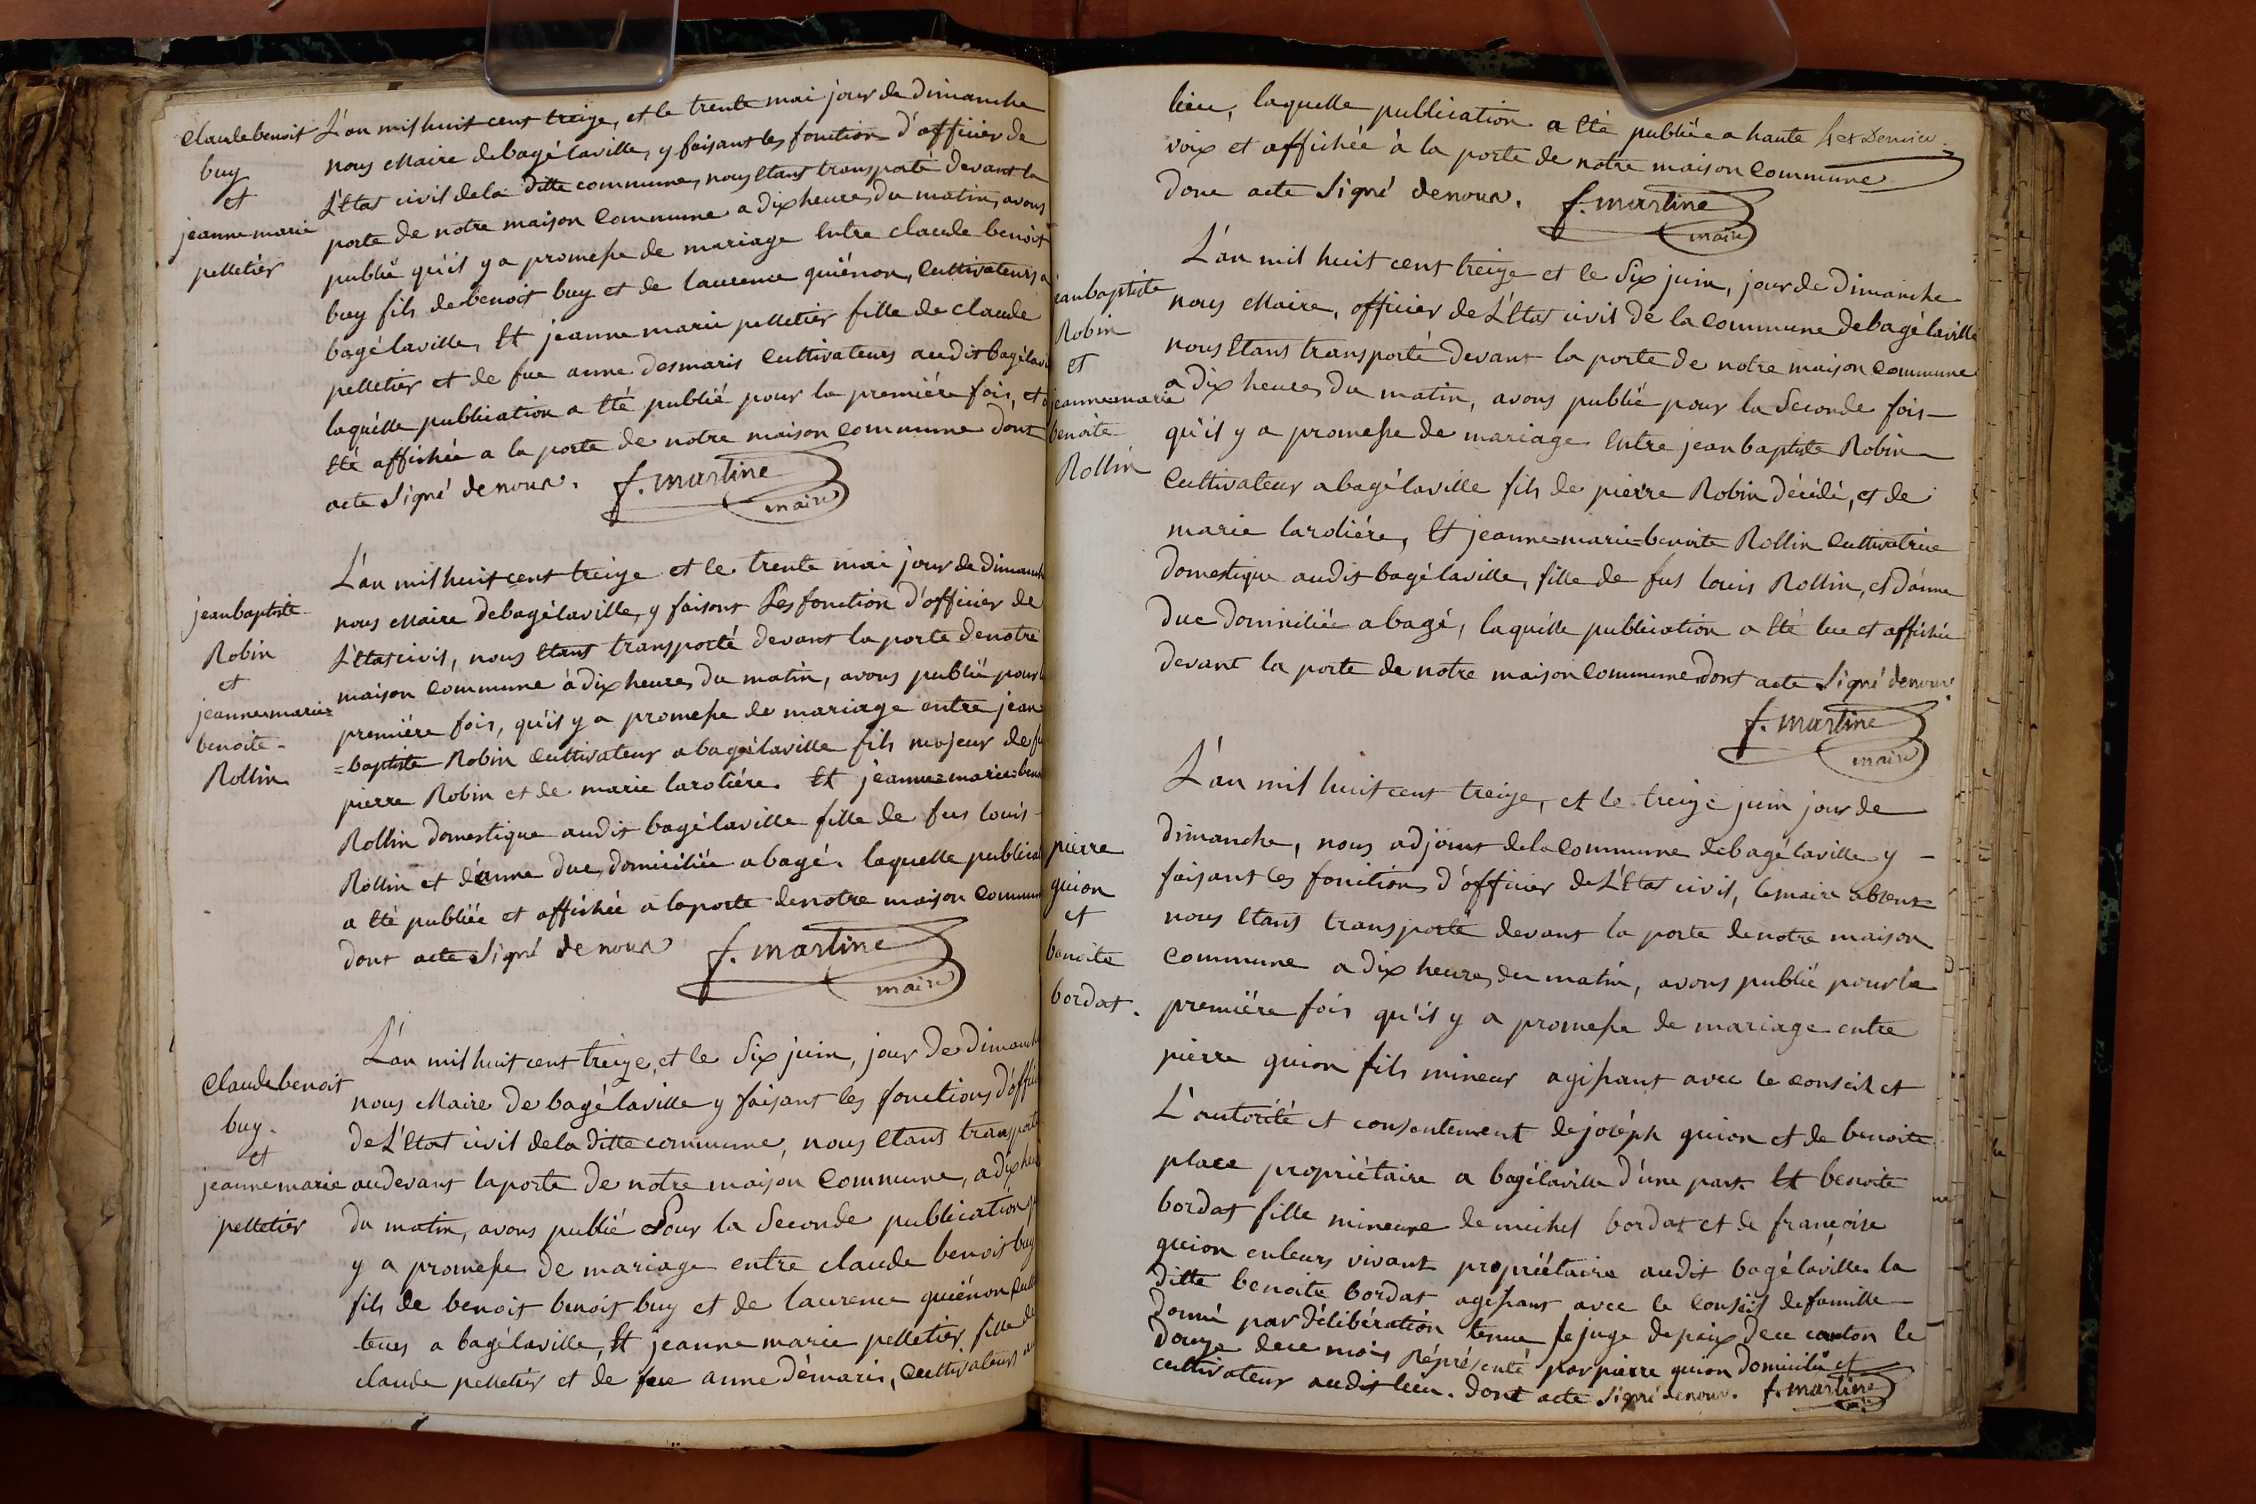 Claude benoit
buy
et
jeanne marie
pelletiér
L'an mil huit cent treize, et le trente mai jour de dimanche
nous Maire de bagé laville, y faisant les fonction d'officier de
L'Etat civil de la ditte commune, nous Etant transporté devant la
porte de notre maison Commune a dix heures du matin, avons
publié qu'il y a promesse de mariage Entre claude benoit
buy fils de benoit buy et de laurence guiénon, Cultivateurs a
bagé laville, Et jeanne marie pelletiér fille de claude
pelletiér et de fue anne desmaris Cultivateurs audit bagé lavi
laquélle publication a Eté publié pour la premiére fois, et a
Eté affichée a la porte de notre maison commune dont
acte Signé de nous. f. martine
maire
jean baptiste
Robin
et
jeanne=marie=
benoite
Rollin
L'an mil huit cent treize et le trente mai jour de dimanche
nous Maire de bagé laville, y faisant Les fonction d'officier de
L'Etat civil, nous Etant transporté devant la porte de notre
maison Commune à dix heures du matin, avons publié pour l
premiére fois, qu'il y a promesse de mariage entre jean
=baptiste Robin Cultivateur a bagé laville fils majeur de fu
pierre Robin et de marie laroliére. Et jeanne=marie=beno
Rollin domestique audit bagé laville fille de fus louis
Rollin et d'anne duc, domiciliée a bagé. laquelle publicat
a Eté publiée et affichée a la porte de notre maison commun
dont acte Signé de nous f. martine
maire
Claude benoit
buy.
et
jeanne marie
pelletiér
L'an mil huit cent treize, et le Six juin, jour de dimanch
nous Maire de bagé laville y faisant les fonctions d'offici
de L'Etat civil de la ditte commune, nous Etant transporté
audevant la porte de notre maison Commune, a dix heu
du matin, avons publié Pour la Seconde publication qu
y a promesse de mariage entre claude benoit buy
fils de benoit benoit buy et de laurence guiénon Culti
teurs a bagé laville, Et jeanne marie pelletiér, fille de
claude pelletiér et de fue anne démaris, Cultivateurs au
lieu, laquelle publication a Eté publiée a haute
voix et affichée à la porte de notre maison Commune
donc acte Signé de nous. f. martine
maire
jean baptiste
Robin
et
jeanne=marie
benoite
Rollin
L'an mil huit cent treize et le Six juin, jour de dimanche
nous Maire, officier de L'Etat civil de la Commune de bagé laville
nous Etant transporté devant la porte de notre maison commune
a dix heures du matin, avons publié pour la Seconde fois
qu'il y a promesse de mariage Entre jean baptiste Robin
Cultivateur a bagé laville fils de pierre Robin décédé, et de
marie laroliére, Et jeanne=marie=benoite Rollin Cultivatrice
domestique audit bagé laville, fille de fus louis Rollin, et d'anne
duc domiciliée a bagé, laquélle publication a Eté lue et affichée
devant la porte de notre maison Commune dont acte Signé de nous.
f. martine
maire
pierre
guion
et
benoite
bordat.
L'an mil huit cent treize, et le treize juin jour de
dimanche, nous adjoint de la Commune de bagé laville y
faisant les fonctions d'officier de L'Etat civil, le maire absent
nous Etant transporté devant la porte de notre maison
Commune a dix heures du matin, avons publié pour la
premiére fois qu'il y a promesse de mariage entre
pierre guion fils mineur agissant avec le conseil et
L'autorité et consentement de joséph guion et de benoite
place propriétaire a bagé laville d'une part. Et benoite
bordat fille mineure de michel bordat et de françoise
guion enleurs vivant propriétaire audit bagé laville. la
ditte benoite bordat agissant avec le Conseil de famille
donné par délibération tenue le juge de paix de ce canton le
douze de ce mois Réprésenté par pierre guion domicilié et
cultivateur audit lieu. dont acte Signé de nous. f. martine